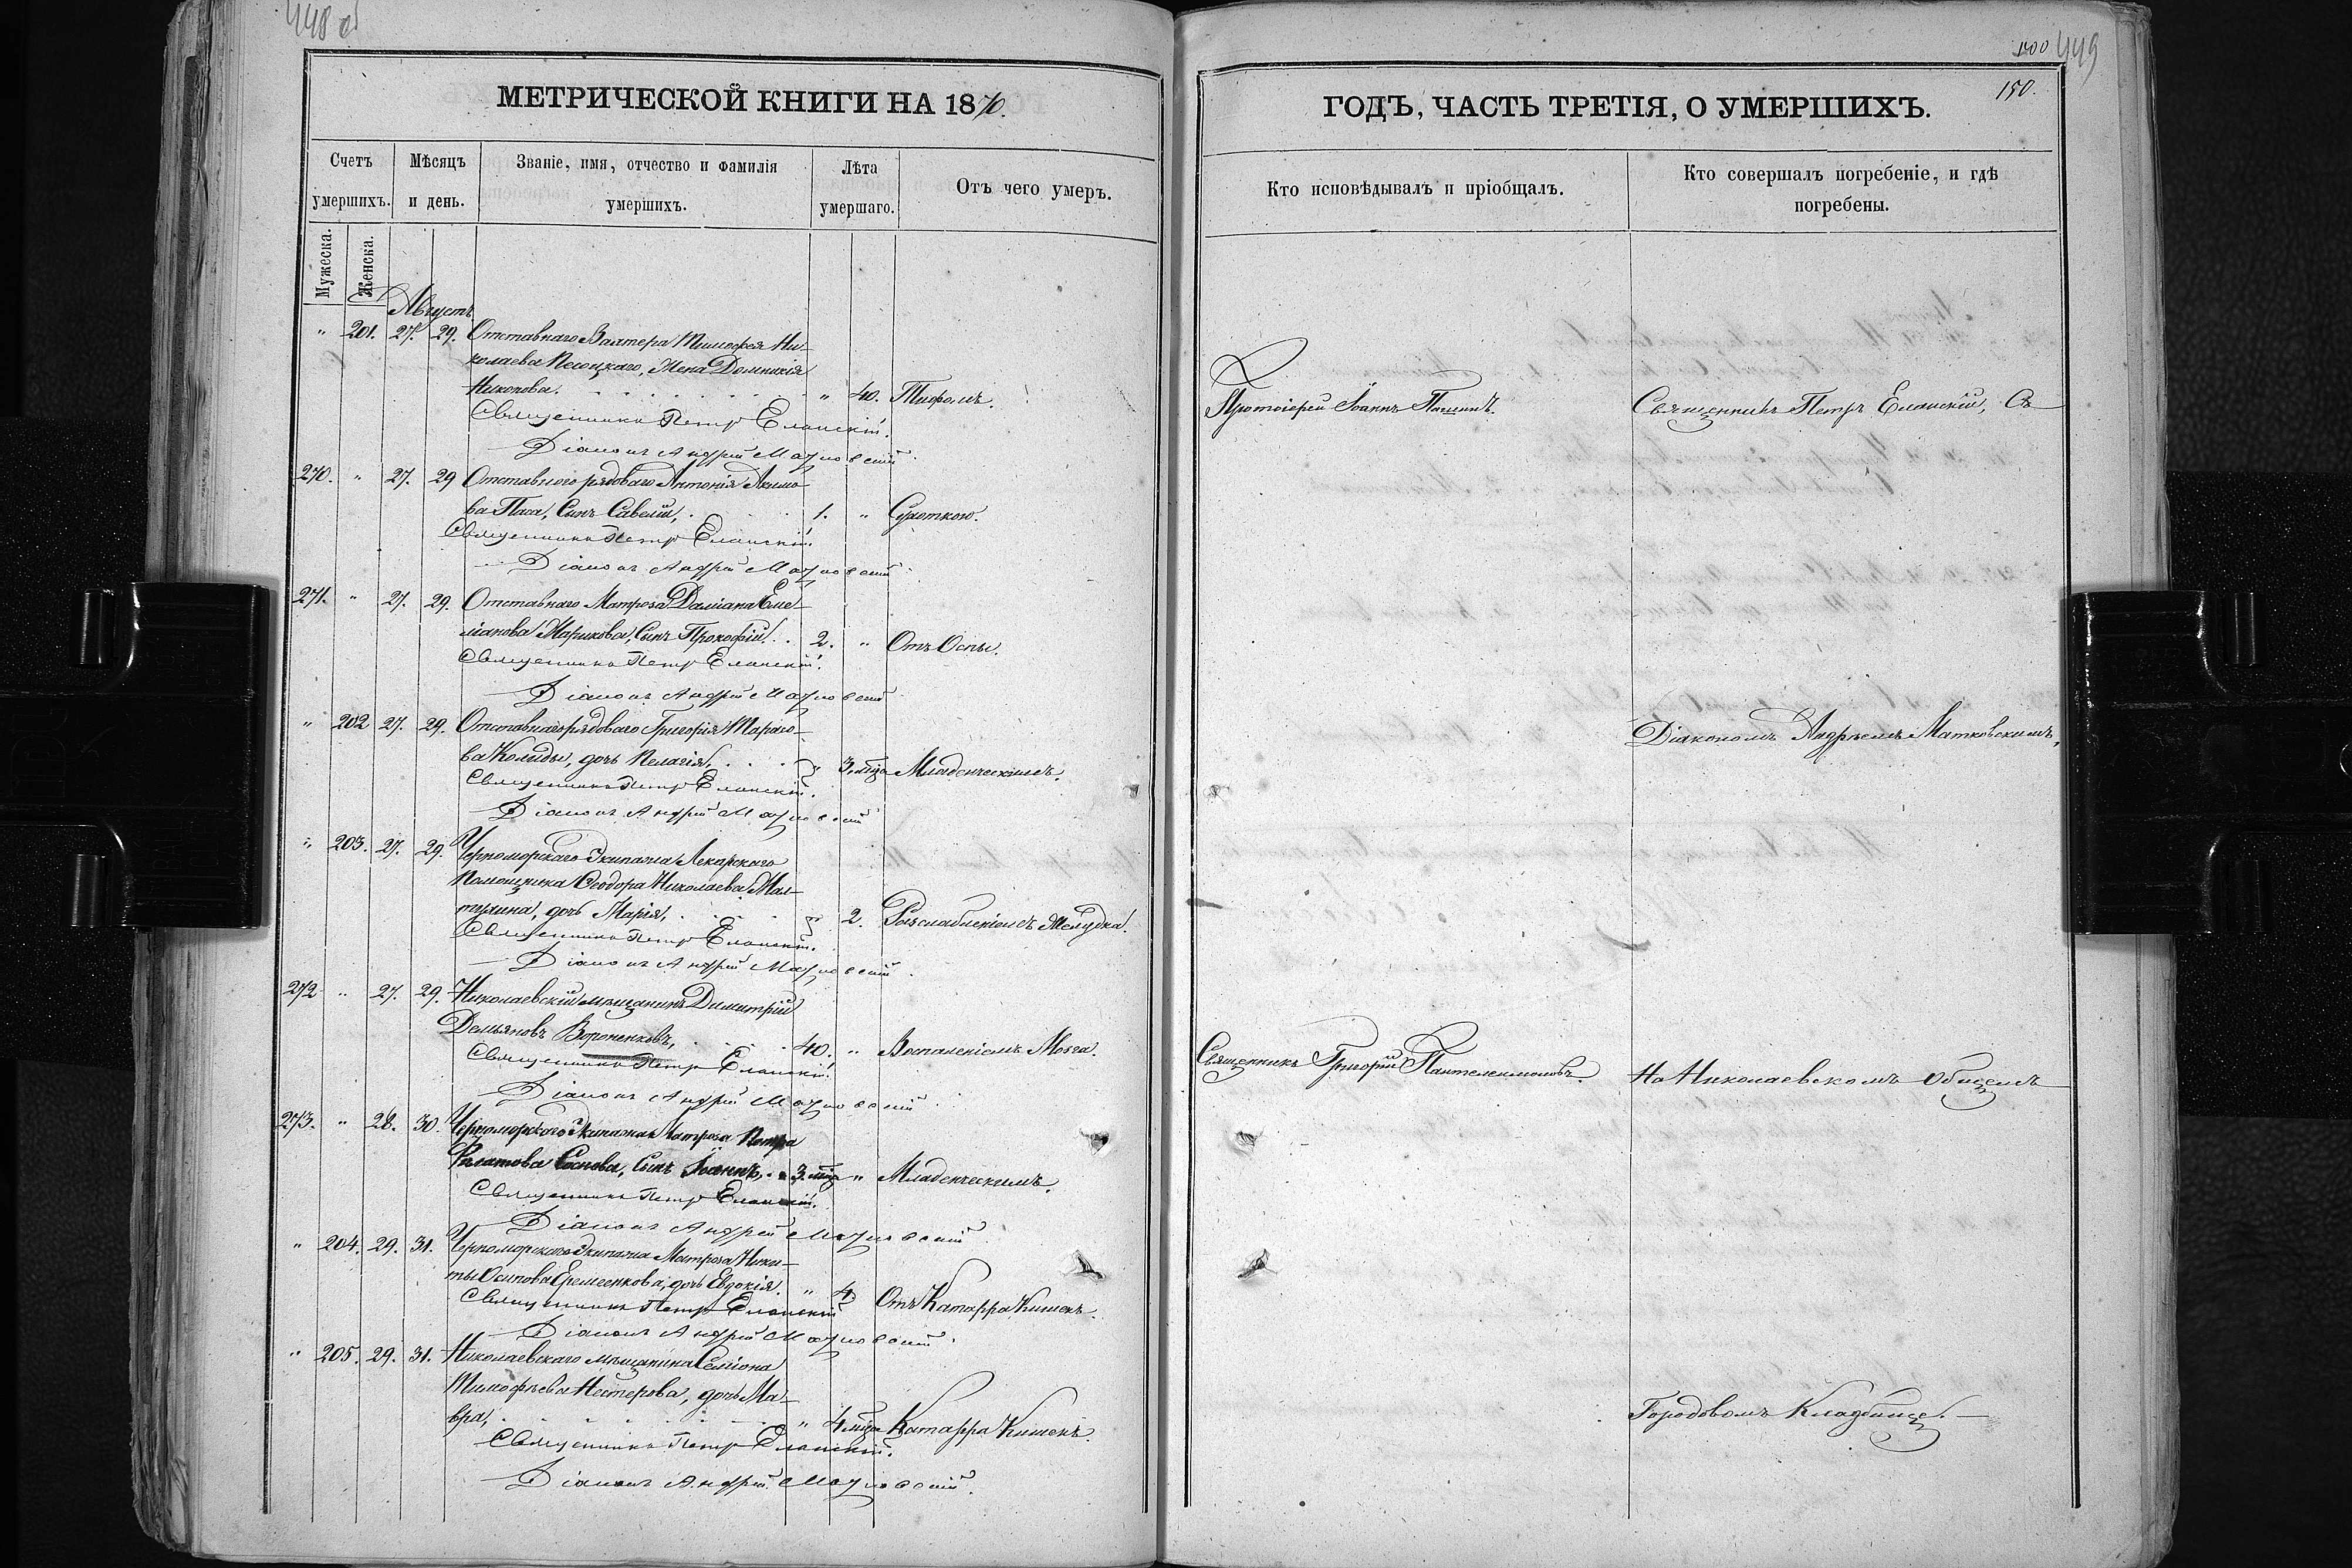 448 об
МЕТРИЧЕСКОЙ КНИГИ НА 1870.
Счетъ умершихъ.
Мѣсяцъ и день.
Званіе, имя, отчество и фамилія умершихъ.
Лѣта умершаго.
Отъ чего умеръ.
Мужеска.
Женска.
Августъ
" 201. 27. 29. Отставнаго Вахтера Тимофея Ни-
колаева Песоцкаго, Жена Домникія
Никонова. " 40. Тифомъ.
Священникъ Петръ Еланскій.
Діаконъ Андрей Матковскій
270. " 27. 29 Отставного рядоваго Антонія Акимо-
ва Паса, Сынъ Савелій, 1. " Сухоткою.
Священникъ Петръ Еланскій.
Діаконъ Андрей Матковскій
271. " 27. 29. Отставнаго Матроза Даміана Еме-
ліанова Марикова, Сынъ Прокофій. 2. " Отъ Оспы.
Священникъ Петръ Еланскій.
Діаконъ Андрей Матковскій
" 202 27. 29. Отставнаго рядоваго Григорія Тарасо-
ва Коляды, дочь Пелагія, " 3 мѣца Младенческимъ.
Священникъ Петръ Еланскій.
Діаконъ Андрей Матковскій
" 203. 27. 29. Черноморскаго Экипажа Лекарскаго
Помощника Ѳеодора Николаева
дочь Марія, " 2. Разслабленіемъ Желудка.
Священникъ Петръ Еланскій.
Діаконъ Андрей Матковскій
272 " 27. 29. Николаевскій мѣщанинъ Димитрій
Демьяновъ Вороненковъ, 40. " Воспаленіемъ Мозга.
Священникъ Петръ Еланскій.
Діаконъ Андрей Матковскій
273. " 28. 30. Черноморскаго Экипажа Матроза Петра
Филатова Соснова, Сынъ Іоаннъ, 3 мѣца " Младенческимъ.
Священникъ Петръ Еланскій.
Діаконъ Андрей Матковскій
" 204. 29. 31. Черноморскаго Экипажа Матроза Ники-
ты Осипова Еремеенкова, дочь Евдокія. " 4. Отъ Катарра Кишекъ.
Священникъ Петръ Еланскій
Діаконъ Андрей Матковскій
" 205. 29. 31. Николаевскаго мѣщанина Симіона
Тимофѣева Нестерова, дочь Ма-
вра, " 4 мѣца Катарра Кишекъ.
Священникъ Петръ Еланскій.
Діаконъ Андрей Матковскій.
449
150.
ГОДЪ, ЧАСТЬ ТРЕТІЯ, О УМЕРШИХЪ.
Кто исповѣдывалъ и пріобщалъ.
Кто совершалъ погребеніе, и гдѣ
погребены.
Протоіерей Іоаннъ
Священникъ Петръ Еланскій, Съ
Діакономъ Андреемъ Матковскимъ,
Священникъ Григорій Пантелеимоновъ.
На Николаевскомъ Общемъ
Городовомъ Кладбище.